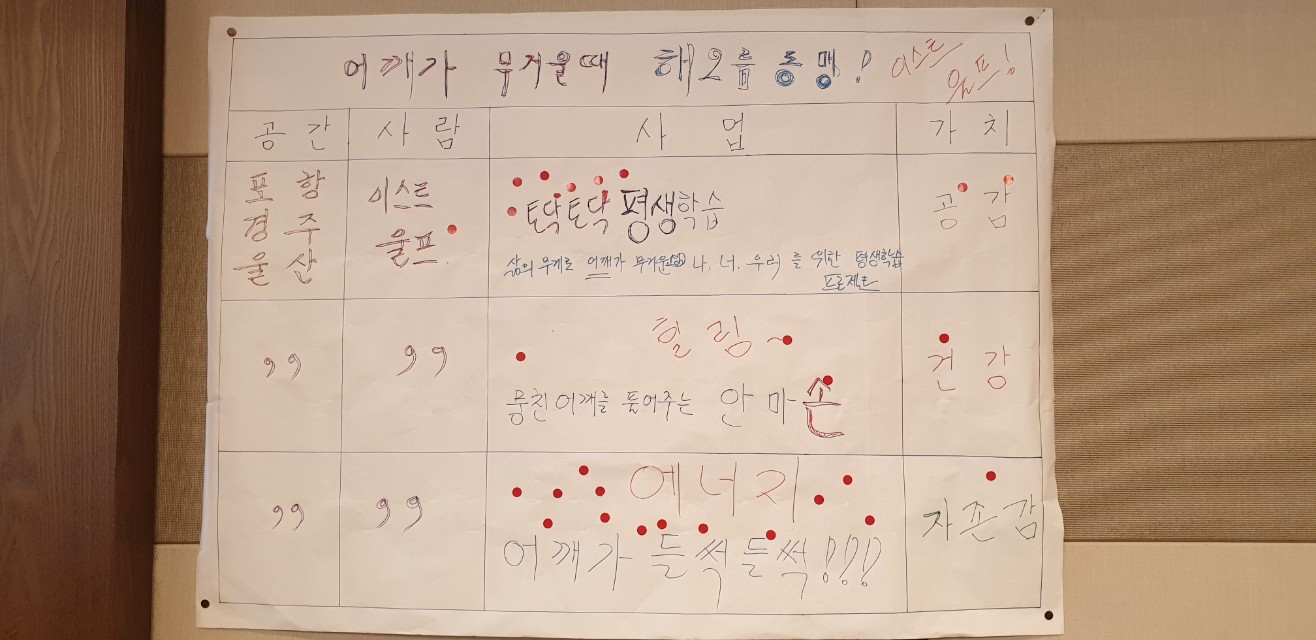 어깨가 무거울때 해오름 동맹! 이스트
울프!
공간 사람 사업 가치
포항
경주
울산
이스트
울프
토닥토닥 평생학습
삶의 무게로 어깨가 무거운 나. 너. 우리를 위한 평생학습
프로젝트
공감
〃 〃
힐링~
뭉친 어깨를 풀어주는 안마손
건강
〃 〃
에너지
어깨가 들썩들썩!!!
자존감